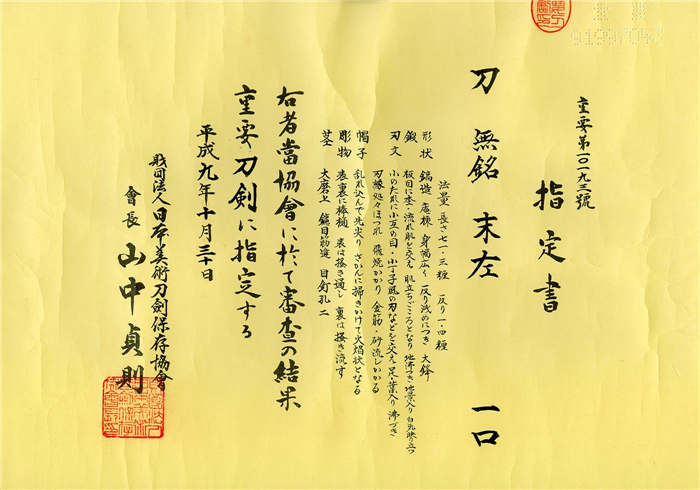 重要第一〇一九三號
指定書
刀 無銘 末左 一口
法量 長さ七一・三糎 反り一・四糎
形状 鎬造 庵棟 身幅広く 反り浅めにつき 大鋒
鍛 板目に杢・流れ肌を交え 肌立ちごころとなり 地沸つき 地景入り 白気映り立つ
刃文 小のたれに小互の目・小丁子風の刃などを交え 足・葉入り 沸づき
刃縁処々ほつれ 飛焼かかり 金筋・砂流しかかる
帽子 乱れ込んで先尖り さかんに掃きかけて火焔状となる
彫物 表裏に棒樋 表は掻き通し 裏は掻き流す
茎 大磨上 鑢目筋違 目釘孔二
右者當協會に於て審査の結果
重要刀剣に指定する
平成九年十月三十日
財団法人日本美術刀劍保存協會
會長 山中貞則